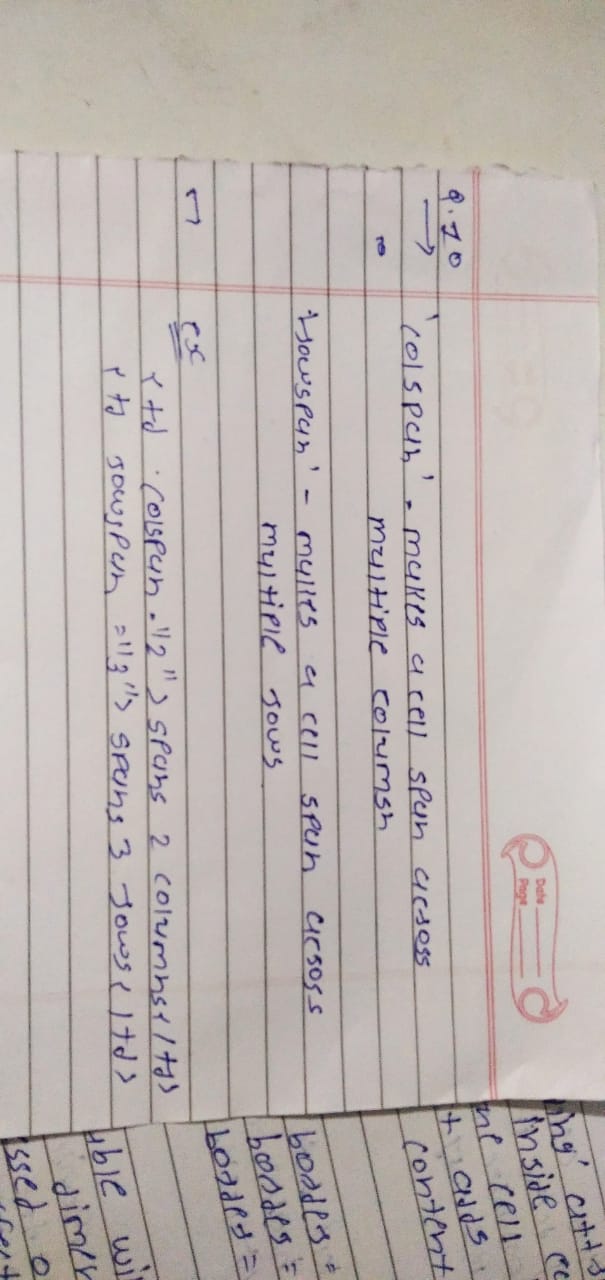 Date
Page
Q.10
→ 'colspan' - makes a cell span across
multiple columsn
'rowspan' - makes a cell span across
multiple rows
ex
<td colspan="2"> spans 2 columns</td>
<td rowspan="3"> spans 3 rows</td>
inside
cell
content
border =
border =
border =